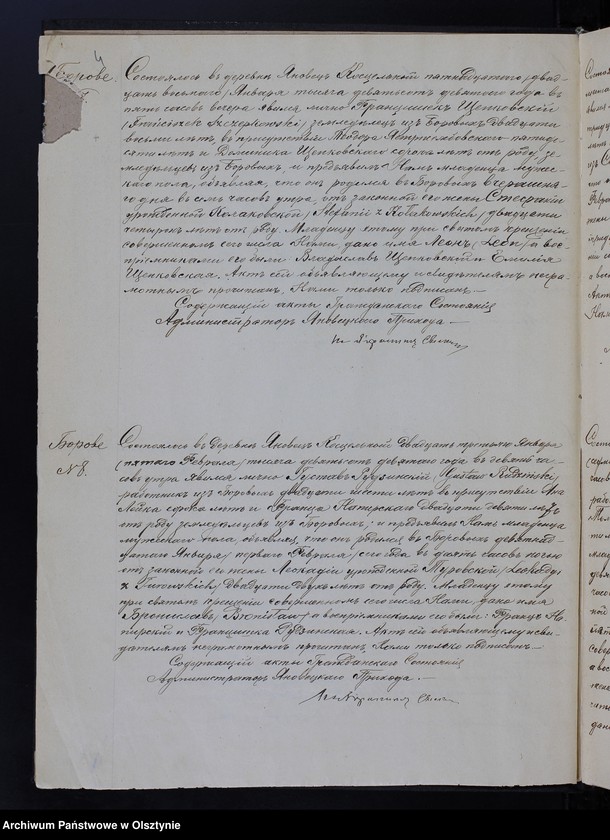 Борове
Состоялось въ деревнѣ Яновецъ Косцельной пятнадцатого /двад-
цать восьмого/ Января тысяча девятьсотъ девятого года въ
пять часовъ вечера явился лично Францишекъ Щепковскій
земледѣлецъ изъ Боровыхъ двадцати
восьми лѣтъ въ присутствіи Теодора пятиде-
сяти лѣтъ и Доминика Щепковского сорока лѣтъ отъ роду зе-
мледѣльцевъ изъ Боровыхъ и предъявилъ Намъ младенца муже-
ского пола, объявляя, что онъ родился въ Боровыхъ вчерашня-
го дня въ семь часовъ утра, отъ законной его жены Стефаніи
урожденной Колаковской двадцати
четырехъ лѣтъ отъ роду. Младенцу этому при святомъ крещеніи
совершенномъ сего числа Нами дано имя Леонъ /Leon/ а вос-
пріемниками его были Владиславъ Щепковскій и Емилія
Щепковская. Актъ сей объявляющему и свидѣтелямъ негра-
мотнымъ прочитанъ, Нами только подписанъ.—
Содержащій акты Гражданского Состоянія
Администраторъ Яновецкого Прихода.—
Борове
N 8.
Состоялось въ деревнѣ Яновецъ Косцельной двадцать третьяго Января
/пятаго Февраля/ тысяча девятьсотъ девятого года въ девять ча-
совъ утра явился лично Густавъ
работникъ изъ Боровыхъ двадцати шести лѣтъ въ присутствіи
сорока лѣтъ и Франца Натирского двадцати девяти лѣтъ
отъ роду земледѣльцевъ изъ Боровыхъ, и предъявилъ Намъ младенца
мужеского пола объявляя, что онъ родился въ Боровыхъ девятнад-
цатого Января /первого Февраля/ сего года въ десять часовъ ночью
отъ законной его жены Леокадіи урожденной Туровской
двадцати двухъ лѣтъ отъ роду. Младенцу этому
при святомъ крещеніи совершенномъ сего числа Нами, дано имя
Брониславъ, а воспріемниками его были: Францъ На-
тирскій и Францишка. Актъ сей объявляющему и сви-
дѣтелямъ неграмотнымъ прочитанъ Нами только подписанъ.—
Содержащій акты Гражданского Состоянія
Администраторъ Яновецкого Прихода.—
Archiwum Państwowe w Olsztynie